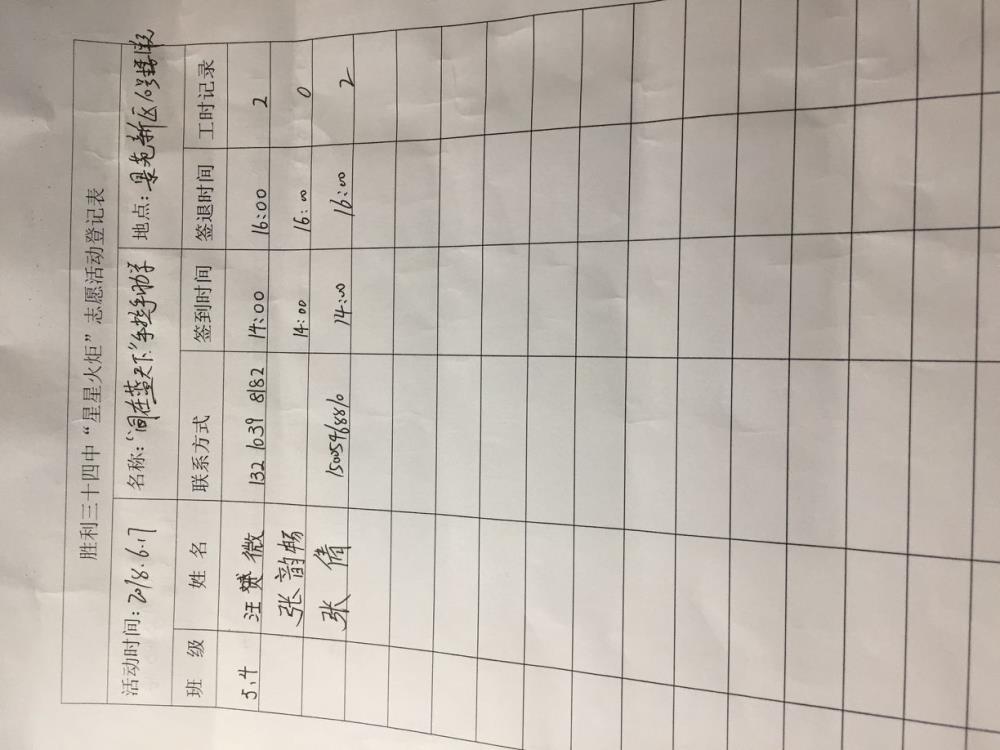 胜利三十四中“星星火炬”志愿活动登记表
活动时间：2018.6.17 名称：“同在蓝天下”手拉手助学 地点：景苑新区
班 级 姓 名 联系方式 签到时间 签退时间 工时记录
5.4 汪赟微 132 1039 8182 14:00 16:00 2
张韵畅 14:00 16:00 0
张倩 15005468810 14:00 16:00 2